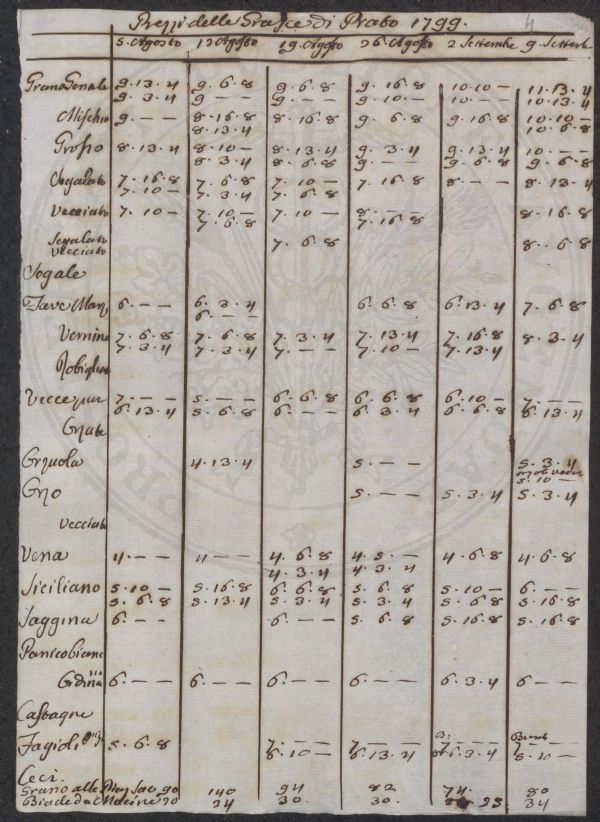 Prezzi delle Grasce di Prato 1799. 4
5. Agosto 12 Agosto 19. Agosto 26 Agosto 2 Settembre 9. Settemb
Grano Gentile 9.13.4 9.6.8 9.6.8 9.16.8 10.10 — 11.13.4
9.3.4 9 — — 9. — — 9.10 — 10. — — 10.13.4
Mischio 9. — — 8.16.8 8.16.8 9.6.8 9.16.8 10.10 —
8.13.4 10.6.8
Grosso 8.13.4 8.10 — 8.13.4 9.3.4 9.13.4 10. — —
8.3.4 8.6.8 9. — — 9.6.8 9.6.8
Segalato 7.16.8 7.6.8 7.10 — 7.16.8 8. — — 8.13.4
7.10 — 7.3.4 7.6.8
Vecciato 7.10 — 7.10 — 7.10 — 8. — — 8.16.8
7.6.8 7.16.8
Segalato 7.6.8 8.6.8
Vecciato
Segale
Fave Marz 6. — — 6.3.4 6.6.8 6.13.4 7.6.8
6. — —
Vernine 7.6.8 7.6.8 7.3.4 7.13.4 7.16.8 8.3.4
7.3.4 7.3.4 7. — — 7.10 — 7.13.4
Robiglie
Vecce pure 7. — — 5. — — 6.6.8 6.6.8 6.10 — 7. — —
6.13.4 5.6.8 6. — — 6.3.4 6.6.8 6.13.4
Orzuola 4.13.4 5. — — 5.3.4
5.10 —
Orzo 5. — — 5.3.4 5.3.4
Vecciato
Vena 4. — — 4 — — 4.6.8 4.5. — 4.6.8 4.6.8
4.3.4 4.3.4
Siciliano 5.10 — 5.16.8 6.6.8 5.6.8 5.10 — 6. — —
5.6.8 5.13.4 5.3.4 5.3.4 5.6.8 5.16.8
Saggina 6. — — 6. — — 5.6.8 5.16.8 5.16.8
Panico bianc
Ordina 6. — — 6. — — 6. — — 6. — — 6.3.4 6 — —
Castagne
Fagioli 5.6.8 7. — — 7. — — 7 — 7 —
6.10 — 6.13.4 6.3.4 5.10 —
Ceci.
Grano alle Piazz Sac. 90 140 94 82 74. 80
Biade da Macine 20 24 30. 30. 25 34